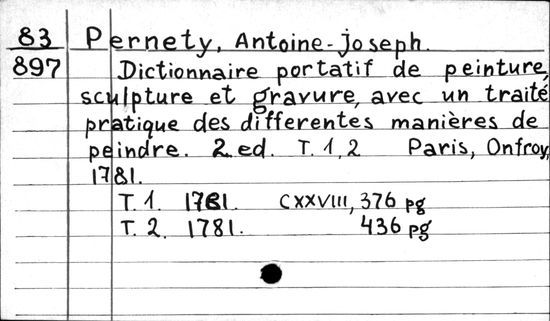 83 Pernety, Antoine-Joseph.
897 Dictionnaire portatif de peinture,
sculpture et gravure, avec un traité
pratique des differentes manières de
peindre. 2 ed. T. 1, 2 Paris, Onfroy,
1781.
T. 1. 1781. CXXVIII, 376 pg
T. 2. 1781. 436 pg